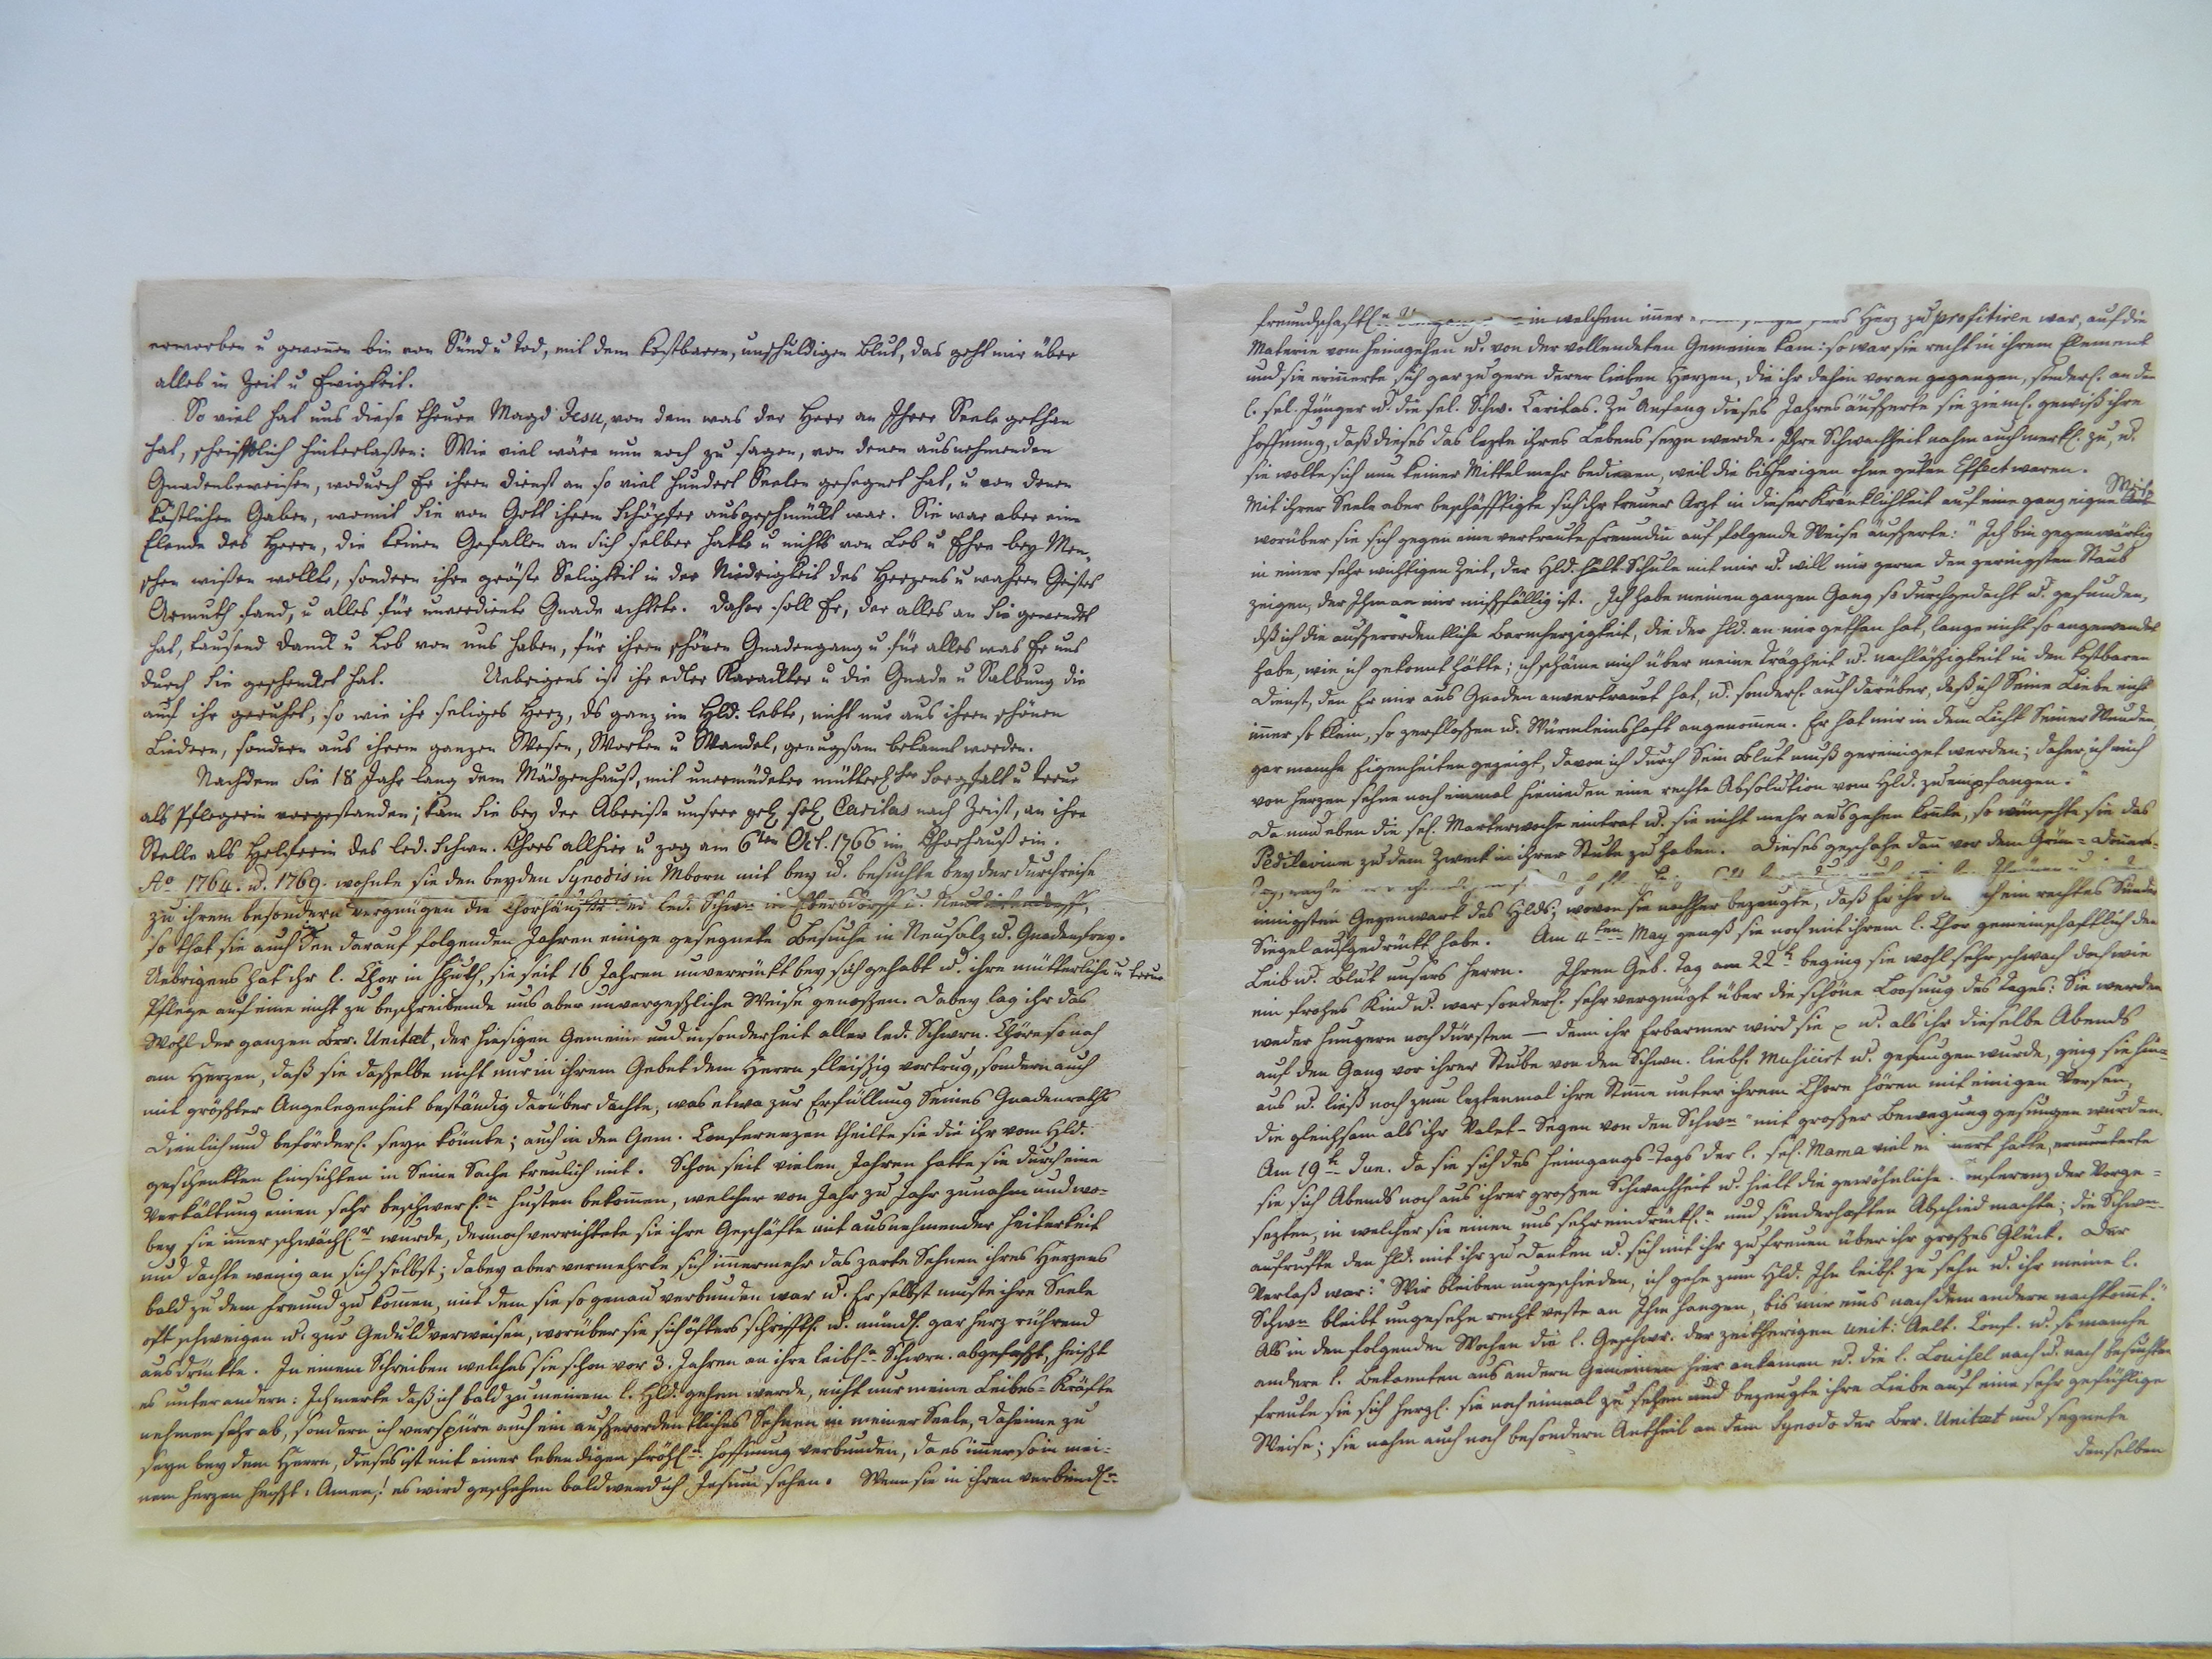 erworben u gewonnen bin von Sünd u Tod, mit dem kostbaren, unschuldigen Blut, das geht mir über
alles in Zeit u Ewigkeit.
So viel hat uns diese theure Magd Jesu, von dem was der Herr an Ihrer Seele gethan
hat, schrifftlich hinterlaßen: Wie viel wäre nun noch zu sagen, von denen ausnehmenden
Gnadenbeweisen, wodurch Er ihren Dienst an so viel hundert Seelen gesegnet hat, u von denen
köstlichen Gaben, womit Sie von Gott ihrem Schöpfer ausgeschmückt war. Sie war aber eine
Elende des Herrn, die keinen Gefallen an sich selber hatte u nichts von Lob u Ehre bey Men-
schen wißen wollte, sondern ihre gröste Seligkeit in der Niedrigkeit des Herzens u wahren Geistes
Armuth fand, u alles für unverdiente Gnade achtete. Dafür soll Er, der alles an Sie gewendt
hat, tausend Danck u Lob von uns haben, für ihren schönen Gnadengang u für alles was Er uns
durch Sie geschenckt hat. Uebrigens ist ihr edler Karackter u die Gnade u Salbung die
auf ihr geruhet, so wie ihr seliges Herz, ds ganz im Hld. lebte, nicht nur aus ihren schönen
Liedern, sondern aus ihrem ganzen Wesen, Worten u Wandel, genugsam bekannt worden.
Nachdem Sie 18 Jahr lang dem Mädgenhauß, mit unermüdeter mütterl.cher Sorgfalt u Treue
als Pflegerin vorgestanden; kam Sie bey der Abreise unsrer sel. Caritas nach Zeist, an ihre
Stelle als Helferin des led. Schwn. Chors allhier u zog am 6ten Oct. 1766 im Chorhauß ein.
Ao 1764. u. 1769. wohnte sie den beyden Synodis in Mborn mit bey u. besuchte bey der Durchreise
zu ihrem besondern Vergnügen die Chorhäuser der led. Schwn in Ebersdorff u. Neudietendorff,
so that sie auch den darauf folgenden Jahren einige gesegnete Besuche in Neusalz u. Gnadenfrey.
Uebrigens hat ihr l. Chor in Hhuth, sie seit 16 Jahren unverrückt bey sich gehabt u. ihre mütterliche u treue
Pflege auf eine nicht zu beschreibende uns aber unvergeßliche Weise genoßen. Dabey lag ihr das
Wohl der ganzen Brr. Unitæt, der hiesigen Gemeine und insonderheit aller led. Schwrn. Chöre so nah
am Herzen, daß sie daßelbe nicht nur in ihrem Gebet dem Herrn fleißig vortrug, sondern auch
mit größter Angelegenheit beständig darüber dachte, was etwa zur Erfüllung Seines Gnadenraths
dienlich und beförderl. seyn könnte; auch in den Gem. Conferenzen theilte sie die ihr vom Hld.
geschenkten Einsichten in Seine Sache treulich mit. Schon seit vielen Jahren hatte sie durch eine
Verkältung einen sehr beschwerl.n Husten bekommen, welcher von Jahr zu Jahr zunahm und wo-
bey sie immer schwächl.er wurde, dennoch verrichtete sie ihre Geschäfte mit ausnehmender Heiterkeit
und dachte wenig an sich selbst; dabey aber vermehrte sich immermehr das zarte Sehnen ihres Herzens
bald zu dem Freund zu kommen, mit dem sie so genau verbunden war u. Er selbst muste ihre Seele
oft schweigen u. zur Geduld verweisen, worüber sie sich öfters schriftl. u. mündl. gar herz rührend
ausdrükte. In einem Schreiben welches sie schon vor 3. Jahren an ihre leibl.n Schwrn. abgefaßt, heißt
es unter andern: Ich merke daß ich bald zu meinem l. Hld. gehen werde, nicht nur meine Leibes-Kräfte
nehmen sehr ab, sondern ich verspüre auch ein außerordentliches Sehnen in meiner Seele, daheime zu
seyn bey dem Herrn, dieses ist mit einer lebendigen fröhl.n Hoffnung verbunden, da es immer so in mei-
nem Herzen heißt: Amen! es wird geschehen bald werd ich Jesum sehen. Wenn sie in ihren verbindl.n
freundschaftl.n in welchem immer Herz zu profitiren war, auf die
Materie vom Heimgehen u. von der vollendeten Gemeine kam: so war sie recht in ihrem Element
und sie erinnerte sich gar zu gern derer lieben Herzen, die ihr dahin voran gegangen, sonderl. an den
l. sel. Jünger u. die sel. Schw. Caritas. Zu Anfang dieses Jahres äußerte sie zieml. gewiß ihre
Hoffnung, daß dieses das lezte ihres Lebens seyn werde. Ihre Schwachheit nahm auch merkl. zu, u.
sie wolte sich nun keiner Mittel mehr bedienen, weil die bisherigen ohne guten Effect waren.
Mit ihrer Seele aber beschäfftigte sich ihr treuer Arzt in dieser Kränklichkeit auf eine ganz eigene Weise
worüber sie sich gegen eine vertraute Freundin auf folgende Weise äußerte: "Ich bin gegenwärtig
in einer sehr wichtigen Zeit, der Hld. hält Schule mit mir u. will mir gerne den geringsten Staub
zeigen, der Ihm an mir mißfällig ist. Ich habe meinen ganzen Gang so durchgedacht u. gefunden,
dß ich die außerordentliche Barmherzigkeit, die der Hld. an mir gethan hat, lange nicht so angewendet
habe, wie ich gekonnt hätte; ich schäme mich über meine Trägheit u. Nachläßigkeit in den kostbaren
Dienst, den Er mir aus Gnaden anvertraut hat, u. sonderl. auch darüber, daß ich Seine Liebe nicht
immer so klein, so zerfloßen u. Würmleinshaft angenommen. Er hat mir in dem Licht Seiner Wunden
gar manche Eigenheiten gezeigt, davon ich durch Sein Blut muß gereiniget werden; daher ich mich
von Herzen sehne noch einmal hienieden eine rechte Absolution vom Hld. zu empfangen."
Da nun eben die sel. Marterwoche eintrat u. sie nicht mehr ausgehen konte, so wünschte sie das
Pedilavium zu dem Zweck in ihrer Stube zu haben. Dieses geschahe dann vor dem Grün-Donners-
innigsten Gegenwart des Hlds, wovon sie nachher bezeugte, daß Er ihr ein rechtes Sünder
Siegel aufgedrückt habe. Am 4ten May genoß sie noch mit ihrem l. Chor gemeinschaftlich den
Leib u. Blut unsers Herrn. Ihren Geb. Tag am 22t beging sie wohl sehr schwach doch wie
ein frohes Kind u. war sonderl. sehr vergnügt über die schöne Loosung des Tages: Sie werden
weder hungern noch dürsten — denn ihr Erbarmer wird sie p u. als ihr dieselbe Abends
auf den Gang vor ihrer Stube von den Schwn. liebl. Musicirt u. gesungen wurde, ging sie hin-
aus u. ließ noch zum leztenmal ihre Stimme unter ihrem Chore hören mit einigen Versen,
die gleichsam als ihr Valet-Segen von den Schwn mit großer Bewegung gesungen wurden.
Am 19t Jun. da sie sich des Heimgangs-Tags der l. sel. Mama viel erinnert hatte, ermunterte
sie sich Abends noch aus ihrer großen Schwachheit u. hielt die gewöhnliche Conferenz der Vorge-
sezten, in welcher sie einen uns sehr eindrückl.n und sünderhaften Abschied machte; die Schwn
aufrufte den Hld. mit ihr zu danken u. sich mit ihr zu freuen über ihr großes Glück. Der
Verlaß war: "Wir bleiben ungeschieden, ich gehe zum Hld. Ihn leibl. zu sehn u. ihr meine l.
Schwn bleibt ungesehn recht veste an Ihm hangen, bis mir eins nach dem andern nachkommt."
Als in den folgenden Wochen die l. Geschwr. der zeitherigen Unit: Aelt. Conf. u. so manche
andere l. Bekannten aus andern Gemeinen hier ankamen u. die l. Louisel nach u. nach besuchten
freute sie sich herzl. sie noch einmal zu sehen und bezeugte ihre Liebe auf eine sehr gefühlige
Weise; sie nahm auch noch besondern Antheil an dem Synodo der Brr. Unitæt und segnete
denselben